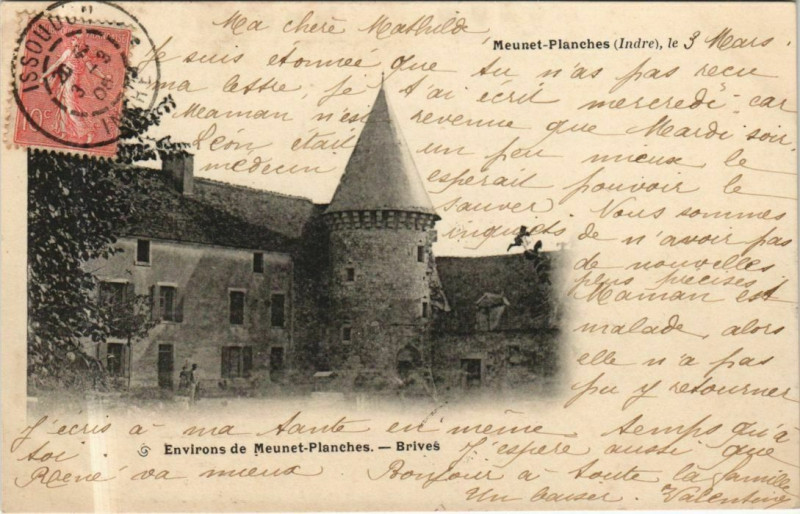 ISSOUDUN
INDRE
3 - 3
05
10c
Ma chère Mathilde
Meunet-Planches (Indre), le 3 Mars.
Je suis étonnée que tu n'as pas reçu
ma lettre, je t'ai écrit mercredi car
Maman n'est revenue que Mardi soir,
Léon était un peu mieux le
médecin espérait pouvoir le
sauver. Nous sommes
inquiets de n'avoir pas
de nouvelles
plus précises,
Maman est
malade, alors
elle n'a pas
pu y retourner
J'écris à ma tante en même temps qu'à
toi. J'espère aussi que
Environs de Meunet-Planches. — Brives
René va mieux Bonjour à toute la famille
Un baiser. Valentine